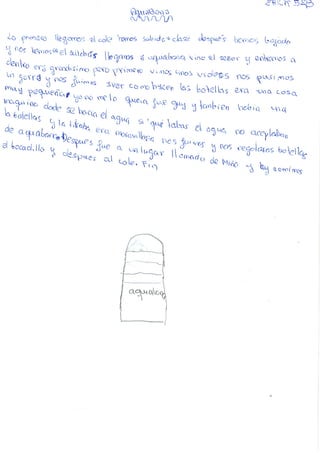 aquabona
lo primero llegamos al cole hemos subido a clase después hemos bajado
y nos fuimos el autobús llegamos a aquabona vino el señor y entramos a
dentro era grandísimo pero primero vimos unos videos nos pusimos
un gorro y nos fuimos a ver como hacen las botellas era una cosa
muy pequeña y yo no me lo creía fue guay y también había una
maquina donde se hacía el agua si que laban el agua no aceptaban
la botellas y la era maravillosa nos fuimos y nos regalaron botellas
de aquabona Después fue a un lugar llamado de Miño y hay comimos
el bocadillo y después al cole. Fin
aquabona